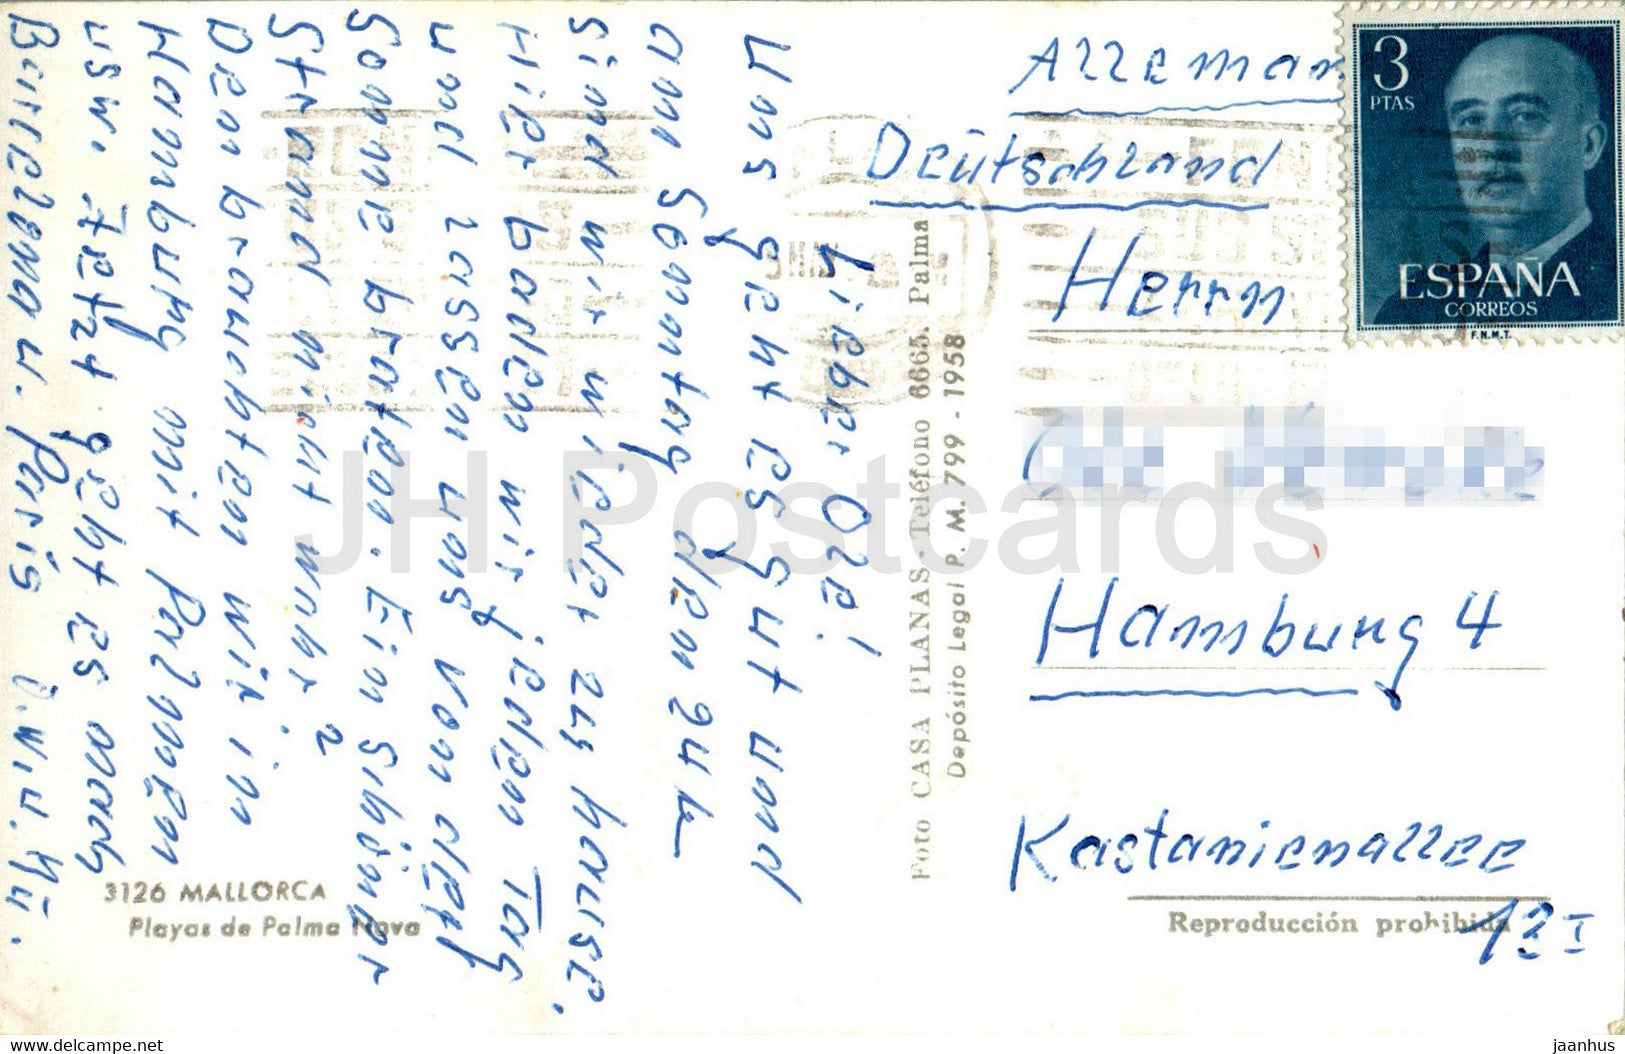 Lieber Ole!
Uns geht es gut und
am Sonntag den 24 h
sind wir wieder zu hause.
Hier baden wir jeden Tag
und lassen uns von der
Sonne braten. Ein Schöner
Strand nicht wahr?
Den brauchten wir in
Hamburg mit Palmen
usw. Jetzt geht es nach
Barcelona u. Paris
3126 MALLORCA
Playas de Palma Nova
Foto CASA PLANAS - Teléfono 6665. Palma
Depósito Legal P. M. 799 - 1958
Alleman
Deutschland
Herrn
Hamburg 4
Kastanienallee
13 I
Reproducción prohibida
3
PTAS
ESPAÑA
CORREOS
F.N.M.T.
JH Postcards
https://www.delcampe.net
jaanhus